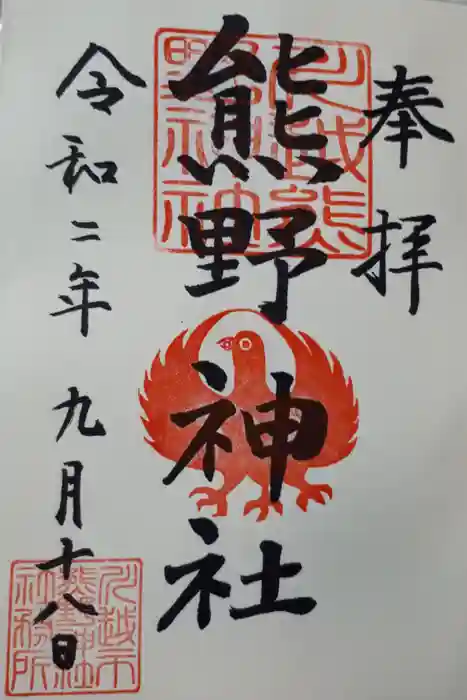 奉拝
川越熊野神社
熊野神社
令和二年九月十八日
川越市熊野神社社務所